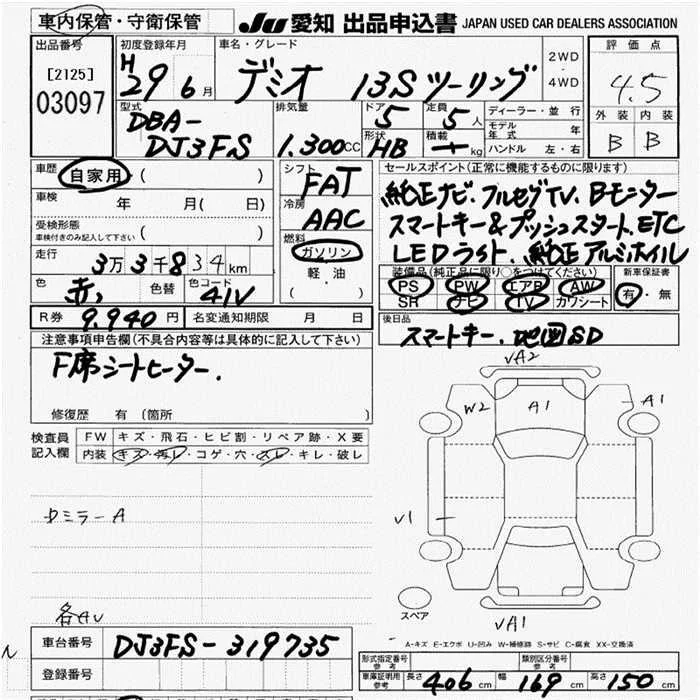 車内保管・守衛保管 JU 愛知 出品申込書 JAPAN USED CAR DEALERS ASSOCIATION
出品番号 [2125] 03097
初度登録年月 H29 6月
車名・グレード デミオ 13S ツーリング
2WD・4WD
評価点 4.5
外装 内装
B B
型式 DBA-DJ3FS
排気量 1.300CC
ドア 5 定員 5人
形状 HB 積載 ー kg
ディーラー・並行
モデル年式 年
ハンドル 左・右
車歴 自家用 ( )
車検 年 月( 日)
受検形態 ( )
車検付きのみ記入して下さい
走行 3万3千834km
色 赤 色替 色コード 41V
シフト FAT
冷房 AAC
燃料 ガソリン
軽・油
( )
セールスポイント(正常に機能するものに限ります)
純正ナビ.フルセグTV.Bモニター
スマートキー&プッシュスタート.ETC
LEDライト.純正アルミホイル
装備品(純正品に限り○をつけてください) 新車保証書
PS PW エアB AW 有・無
SR ナビ TV カワシート
R券 9.940円 名変通知期限 月 日
後日品 スマートキー.地図SD
注意事項申告欄(不具合内容等は具体的に記入して下さい)
F席シートヒーター.
修復歴 有 (箇所 )
検査員記入欄 FW キズ・飛石・ヒビ割・リペア跡・X要
内装 キズ・汚レ・コゲ・穴・スレ・キレ・破レ
VA2
W2 A1 A1
ミラーA
V1
各AU
スペア
VA1
A-キズ E-エクボ U-凹み W-補修跡 S-サビ C-腐食 XX-交換済
車台番号 DJ3FS-319735
登録番号
形式指定番号参考 類別区分番号参考
車庫証明用参考 長さ 406cm 幅 169cm 高さ 150cm